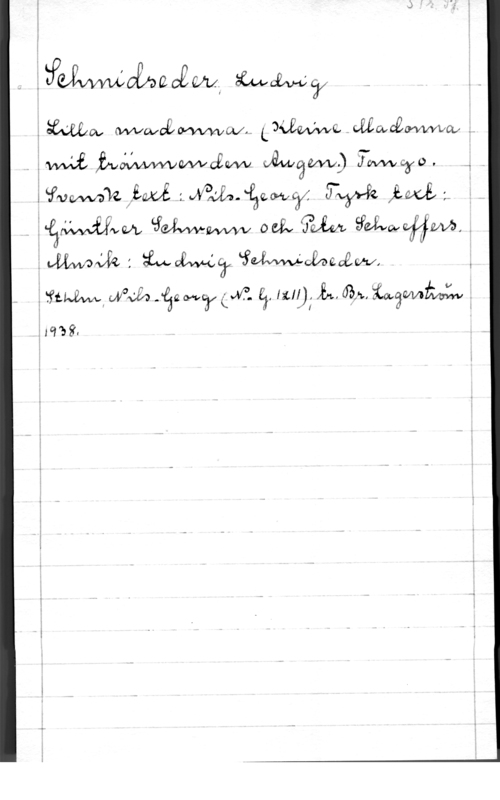 Schmidseder, Ludwig
Lilla madonna. (Kleine Madonna
mit träumenden Augen.) Tango.
Svensk text: Nils-Georg. Tysk text:
Günther Schwenn och Peter Schaeffers.
Musik: Ludwig Schmidseder.
Sthlm, Nils-Georg (N.G. 1211), tr. Br. Lagerström
1938.